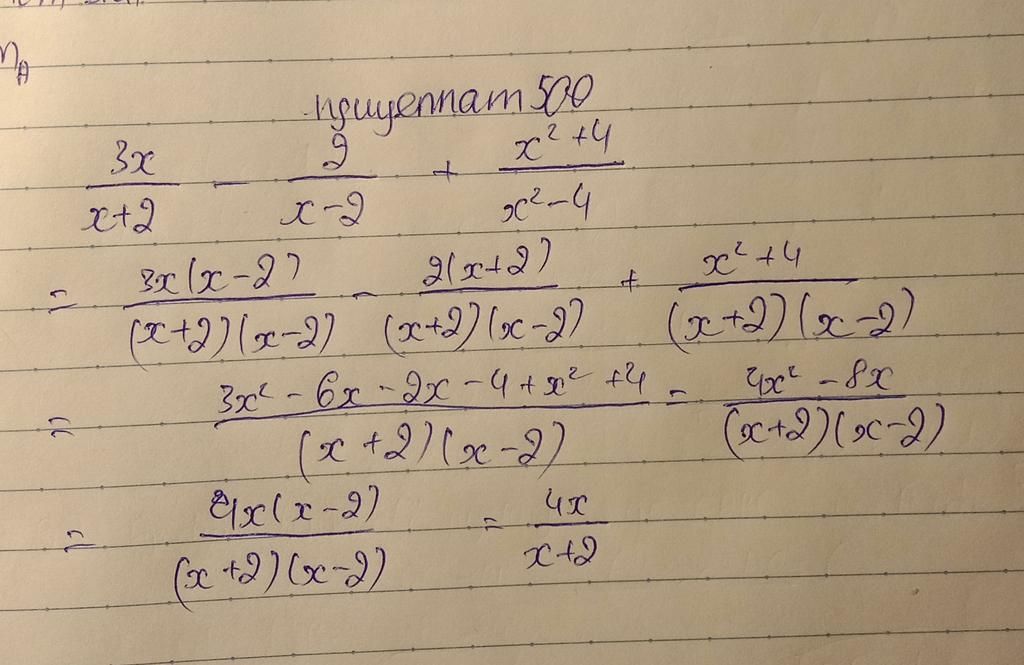 nguyennam500
3x/(x+2) - 2/(x-2) + (x²+4)/(x²-4)
= 3x(x-2)/((x+2)(x-2)) - 2(x+2)/((x+2)(x-2)) + (x²+4)/((x+2)(x-2))
= (3x² - 6x - 2x - 4 + x² + 4)/((x+2)(x-2)) = (4x² - 8x)/((x+2)(x-2))
= 4x(x-2)/((x+2)(x-2)) = 4x/(x+2)